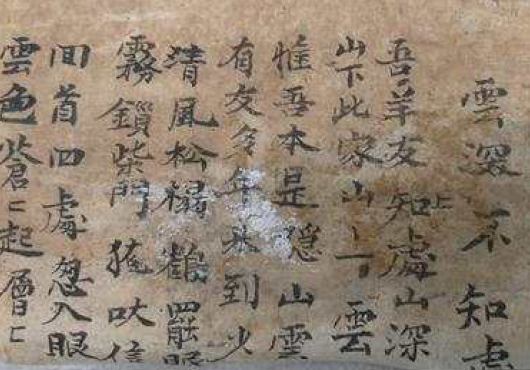 雲深不知處
吾羊友知處山深
山下此家山上雲
惟吾本是隱山雲
有友多年來到火
清風松榻鶴罷眠
霧鎖柴門吠信
回首四處忽入眼
雲色蒼〻起層〻